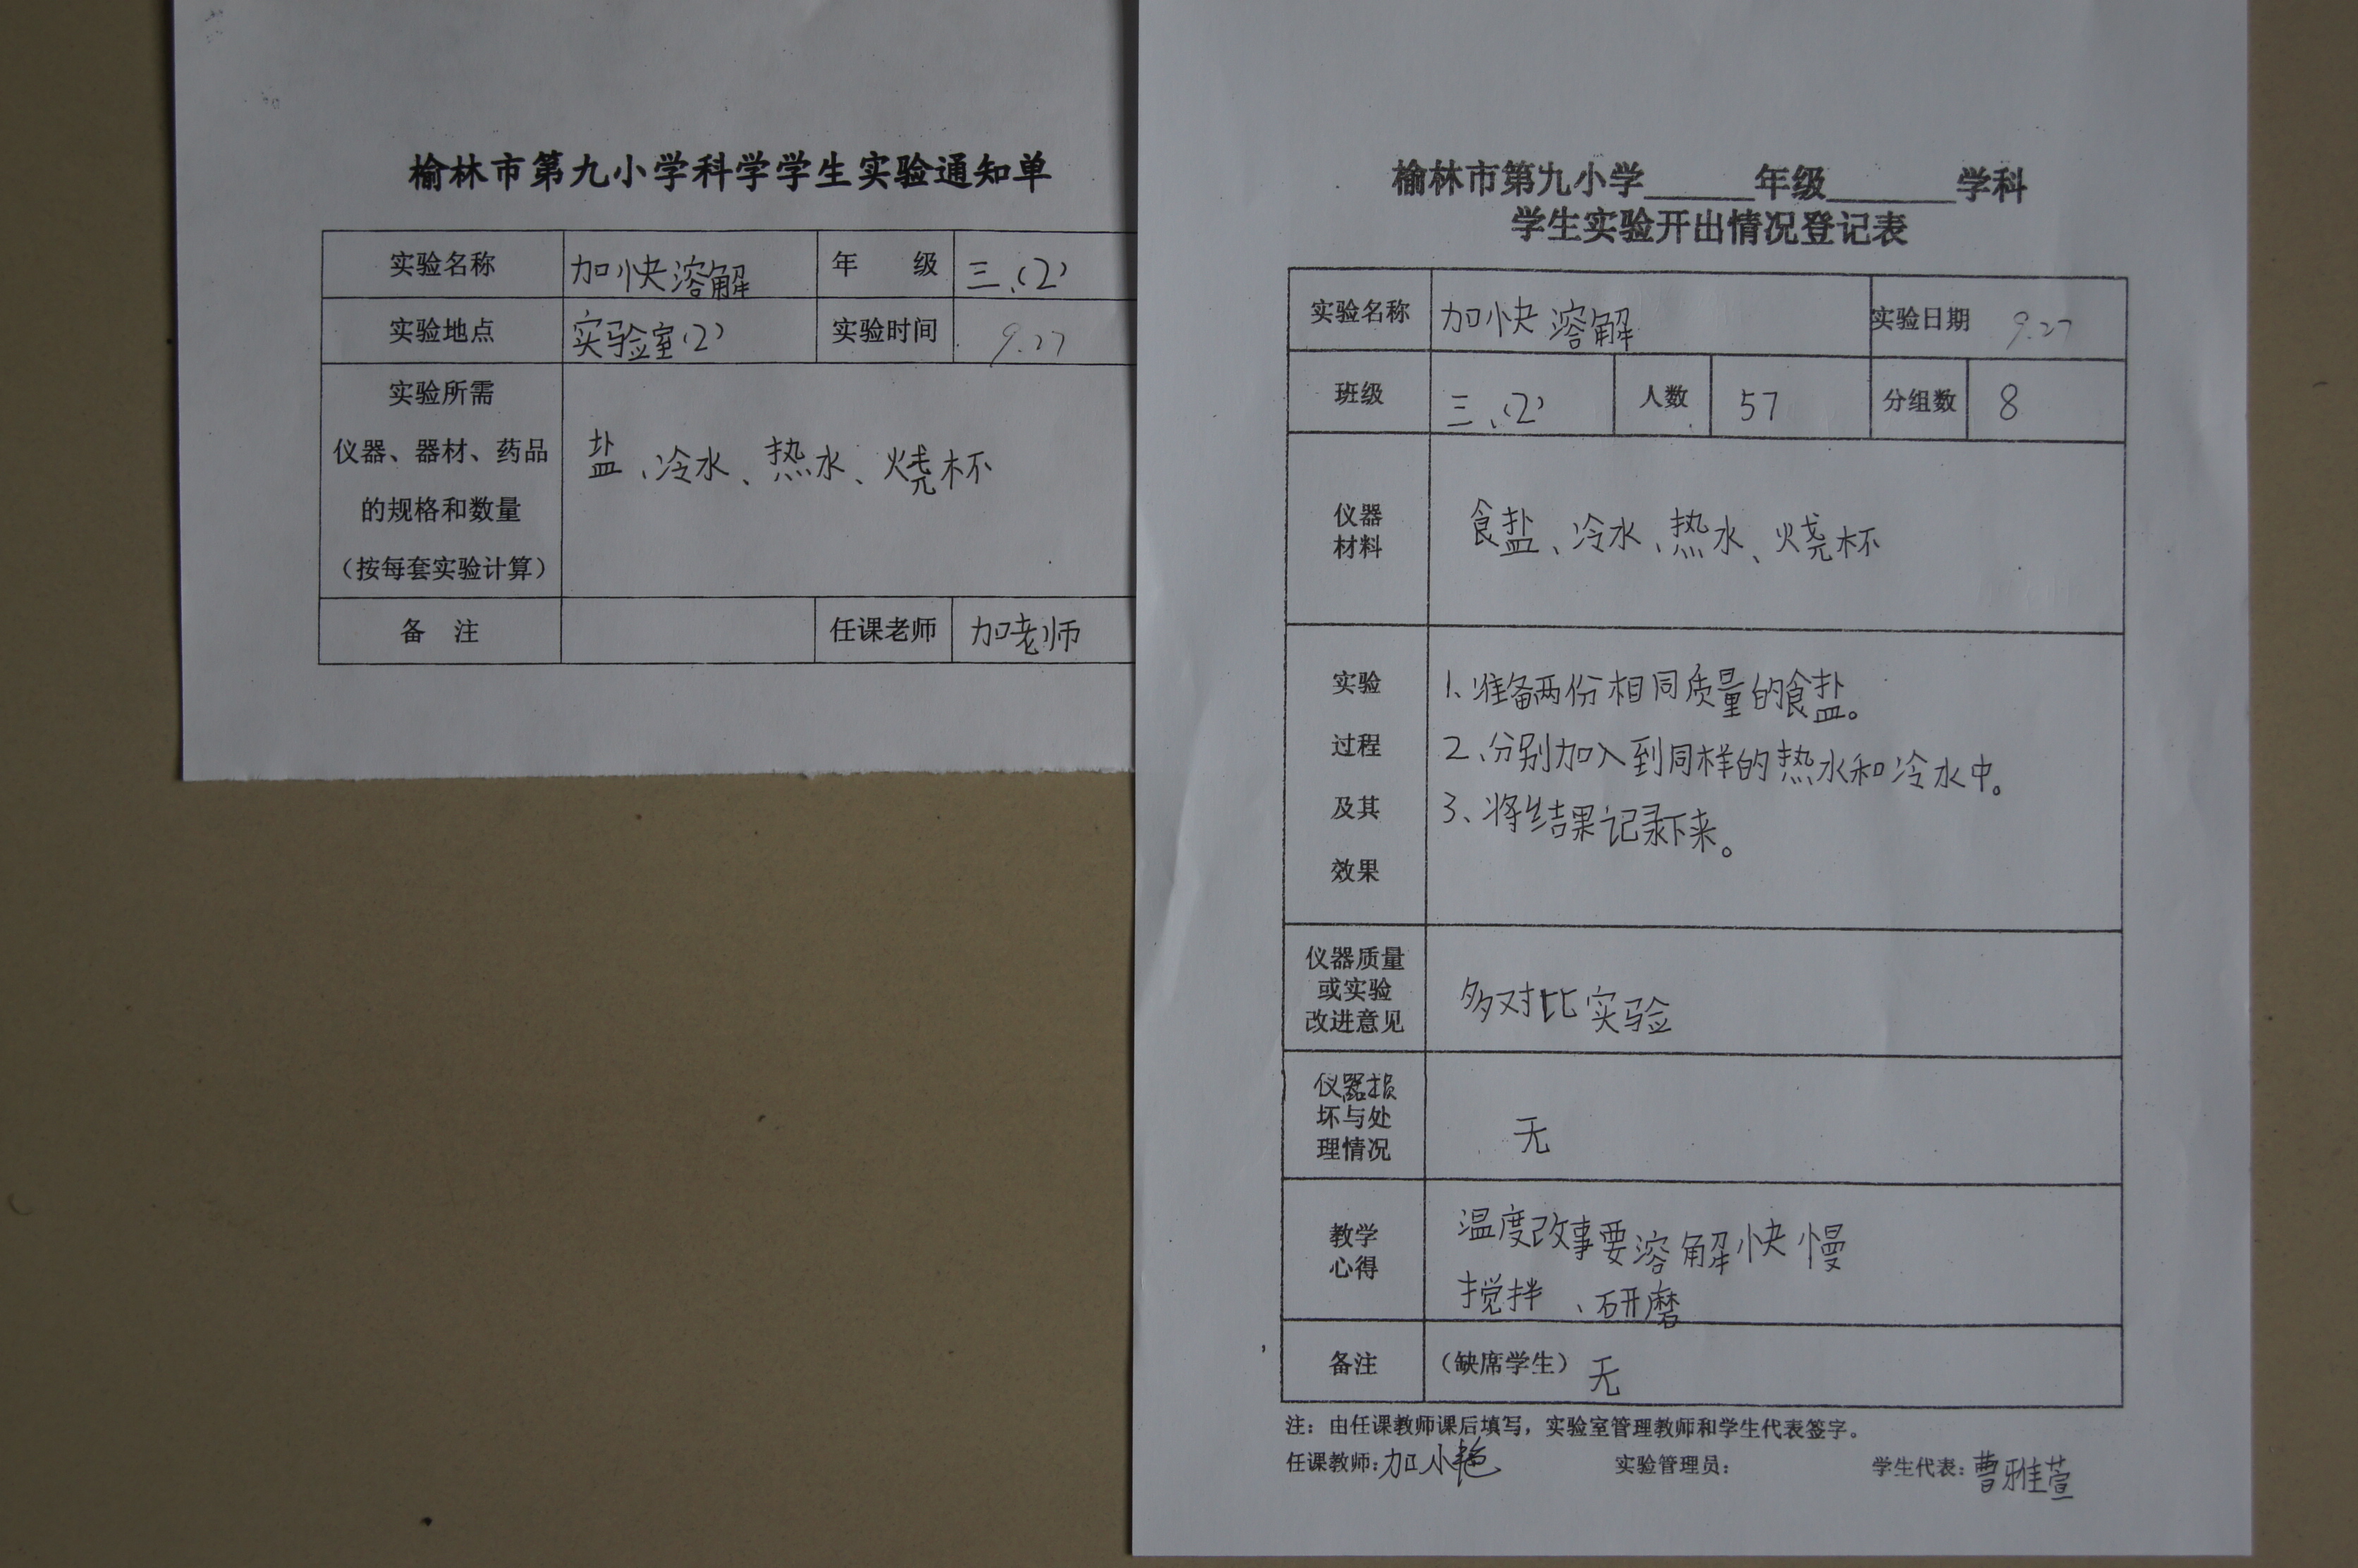 榆林市第九小学科学学生实验通知单
实验名称 加快溶解 年 级 三、(2)
实验地点 实验室(2) 实验时间 9.27
实验所需
仪器、器材、药品
的规格和数量
（按每套实验计算）
盐、冷水、热水、烧杯
备 注 任课老师 加老师
榆林市第九小学______年级_______学科
学生实验开出情况登记表
实验名称 加快溶解 实验日期 9.27
班级 三、(2) 人数 57 分组数 8
仪器
材料
食盐、冷水、热水、烧杯
实验
过程
及其
效果
1、准备两份相同质量的食盐。
2、分别加入到同样的热水和冷水中。
3、将结果记录下来。
仪器质量
或实验
改进意见
多对比实验
仪器损
坏与处
理情况
无
教学
心得
温度改事要溶解快慢
搅拌、研磨
备注 （缺席学生） 无
注：由任课教师课后填写，实验室管理教师和学生代表签字。
任课教师：加小艳 实验管理员： 学生代表：曹雅萱